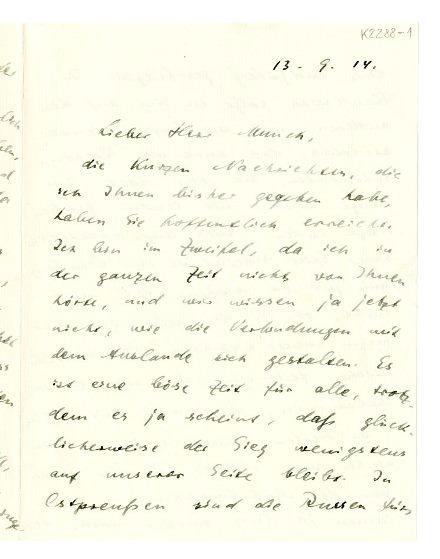 K2288-1
13 - 9. 14.
Lieber Herr Munch,
die kurzen Nachrichten, die
ich Ihnen bisher gegeben habe,
haben Sie hoffentlich erreicht.
Ich bin im Zweifel, da ich in
der ganzen Zeit nichts von Ihnen
hörte, und wir wissen ja jetzt
nicht, wie die Verbindungen mit
dem Auslande sich gestalten. Es
ist eine böse Zeit für alle, trotz-
dem es ja scheint, daß glück-
licherweise der Sieg wenigstens
auf unserer Seite bleibt. In
Ostpreußen sind die Russen